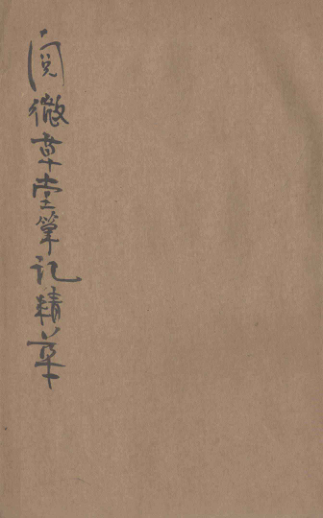 阅微草堂笔记精华